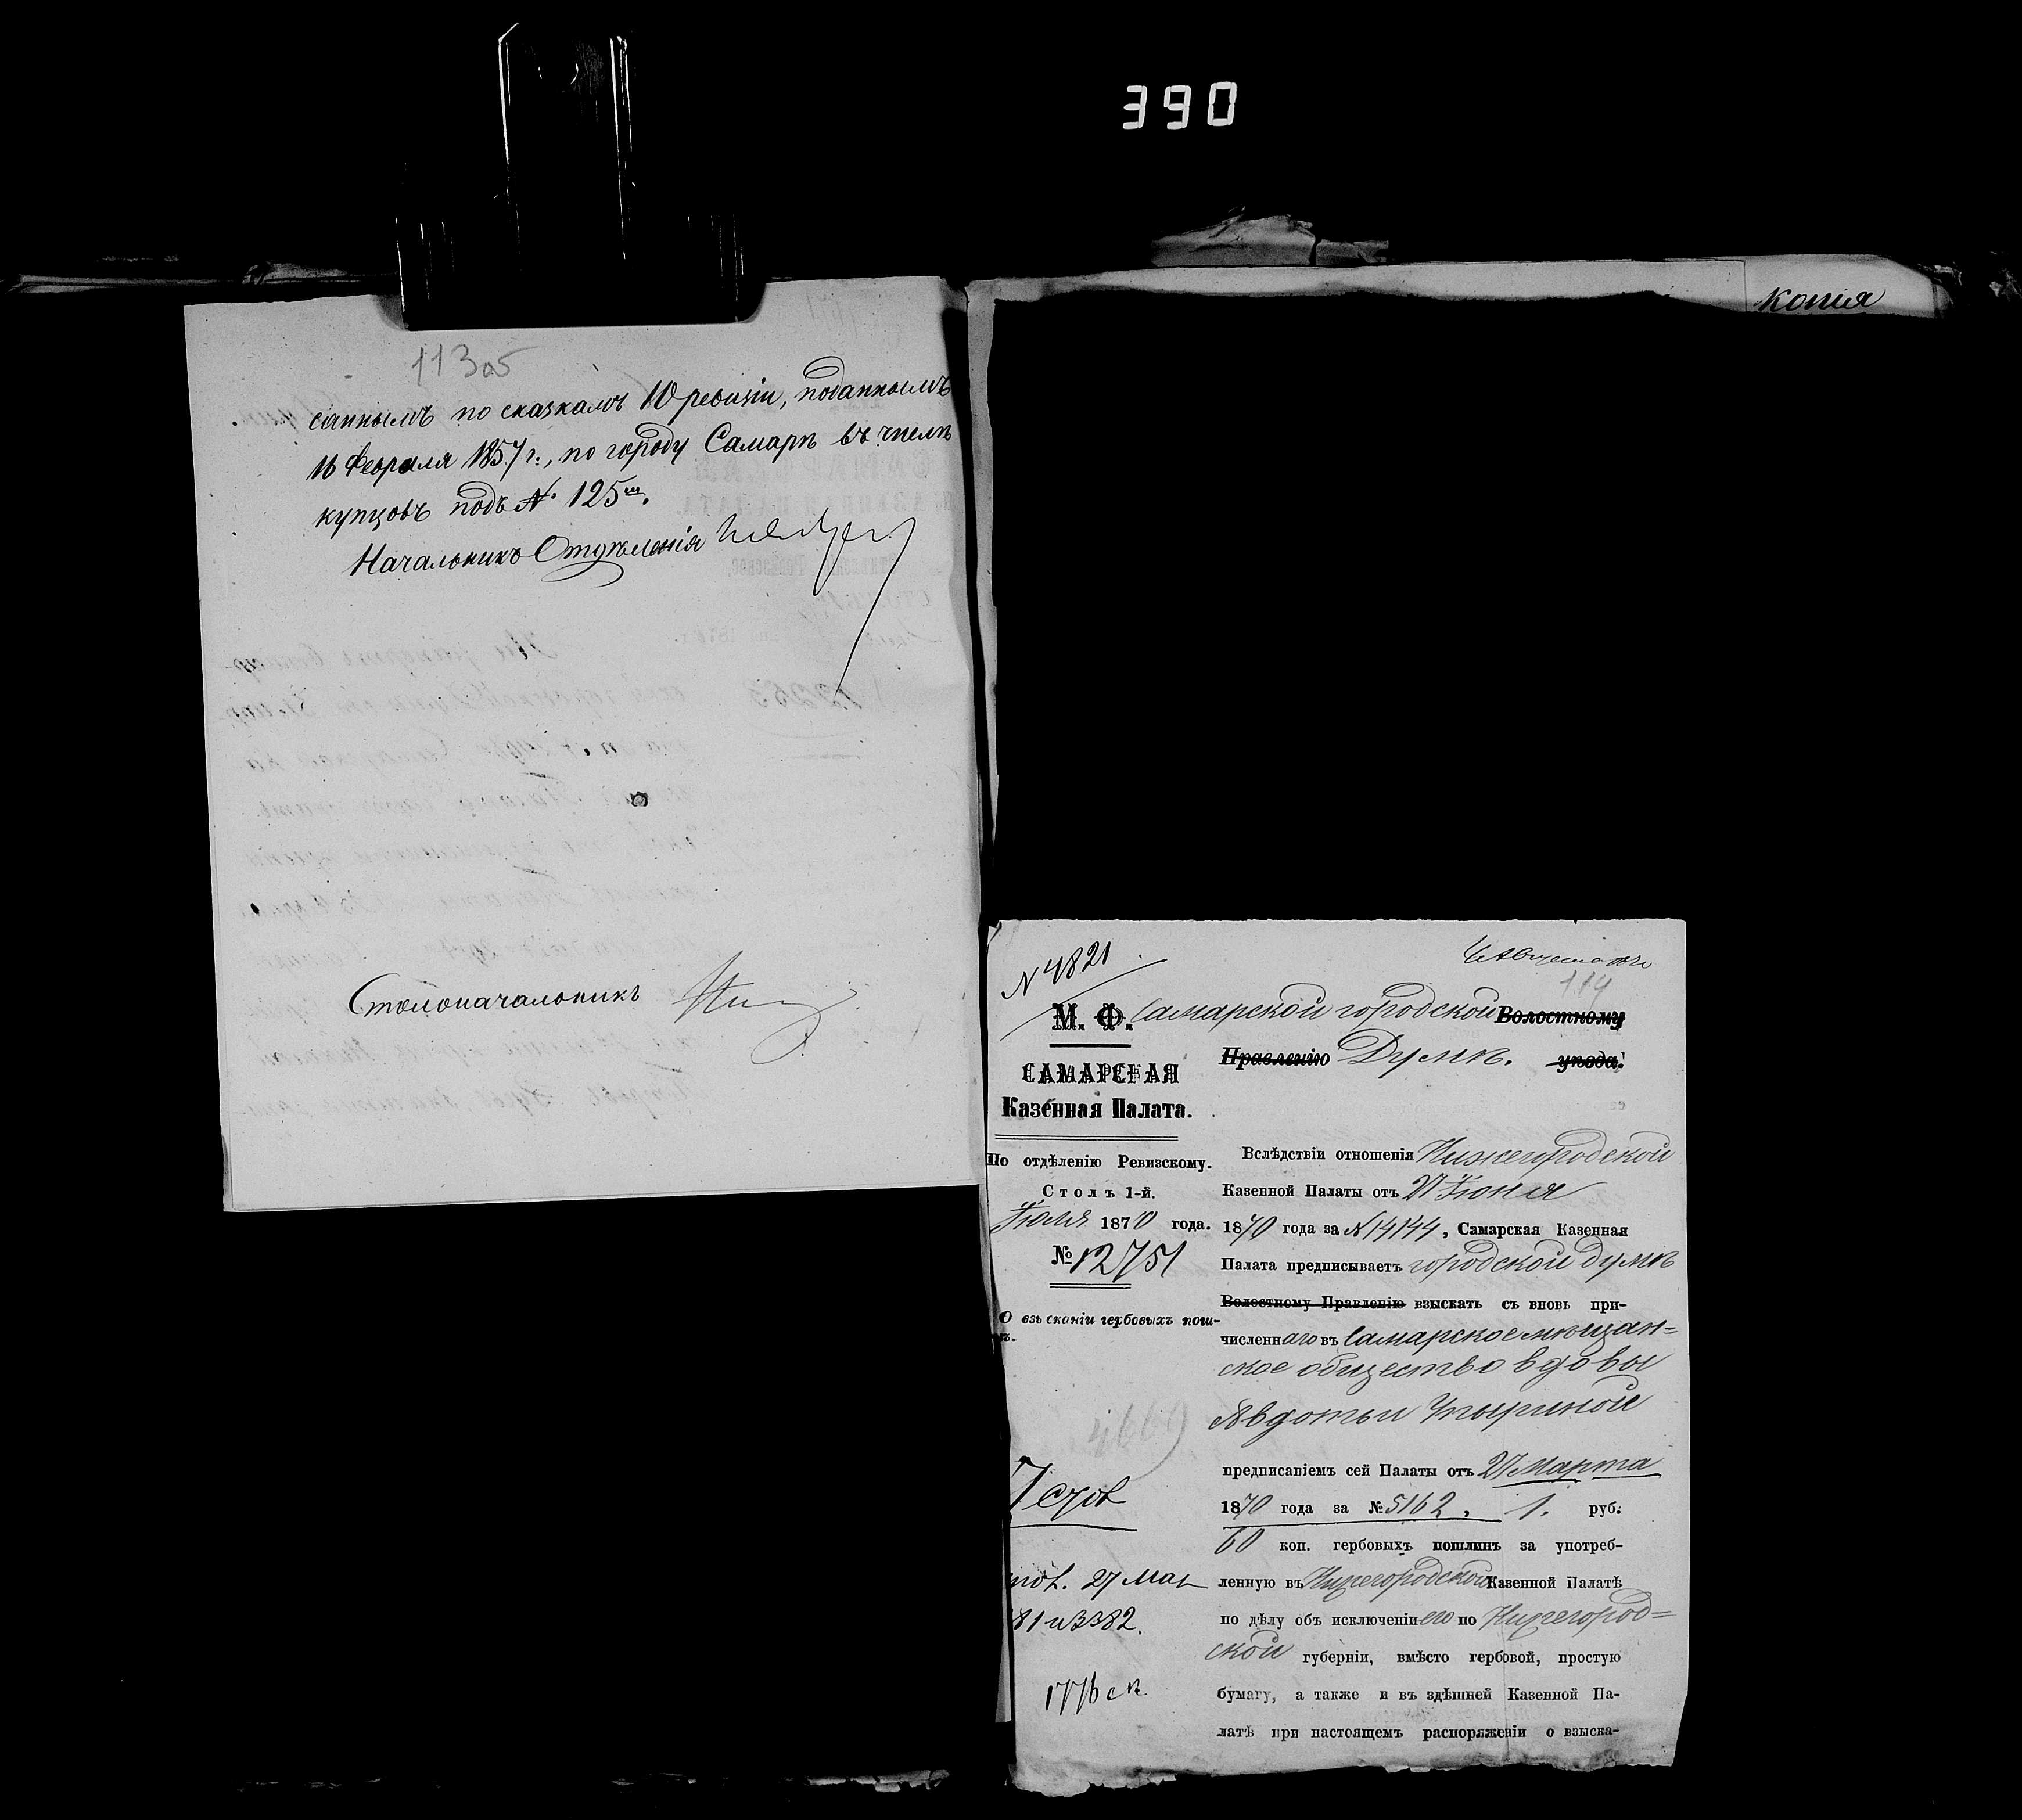 390
копія
113об
саннымъ по сказкамъ 10 ревизіи, поданнымъ
16 Февраля 1857 г., по городу Самарѣ въ числѣ
купцовъ подъ № 125ш.
Начальникъ Отдѣленія
Столоначальникъ
N 4821
Августа
114
М. Ф.
САМАРСКАЯ
Казенная Палата.
По отдѣленію Ревизскому.
Столъ 1-й.
Іюля 1870 года.
№ 12751
О взысканіи гербовыхъ пош-
4669
27 Мар
81 и 3382.
1776
Самарской городской Волостному
Правленію Думѣ. уѣзда.
Вслѣдствіи отношенія Нижегородской
Казенной Палаты отъ 27 Іюня
1870 года за № 14144, Самарская Казенная
Палата предписываетъ городской думѣ
Волостному Правленію взыскать съ вновь при-
численнаго въ Самарское мѣщан=
ское общество вдовы
Авдотьи Упыриной
предписаніемъ сей Палаты отъ 27 Марта
1870 года за № 5162, 1. руб.
60 коп. гербовыхъ пошлинъ за употреб-
ленную въ Нижегородской Казенной Палатѣ
по дѣлу объ исключеніи его по Нижегород=
ской губерніи, вмѣсто гербовой, простую
бумагу, а также и въ здѣшней Казенной Па-
латѣ при настоящемъ распоряженіи о взыска-